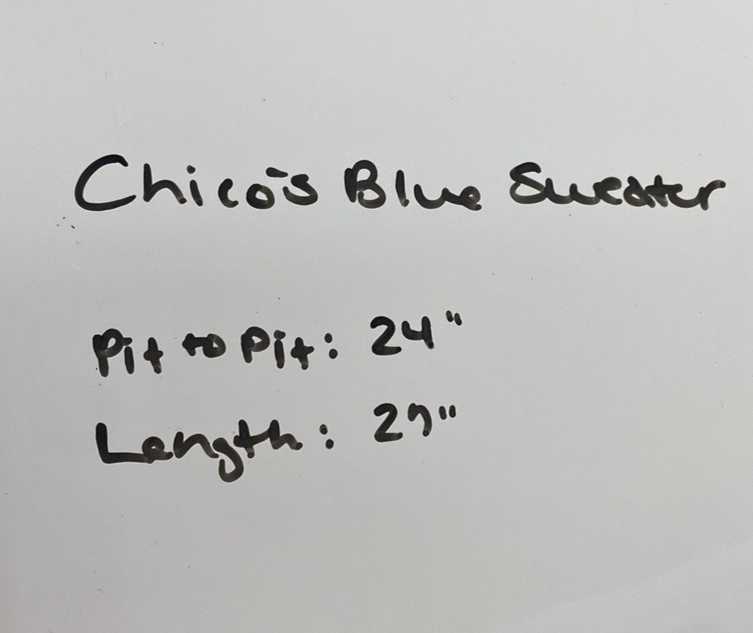 Chico's Blue Sweater
Pit to Pit: 24"
Length: 27"